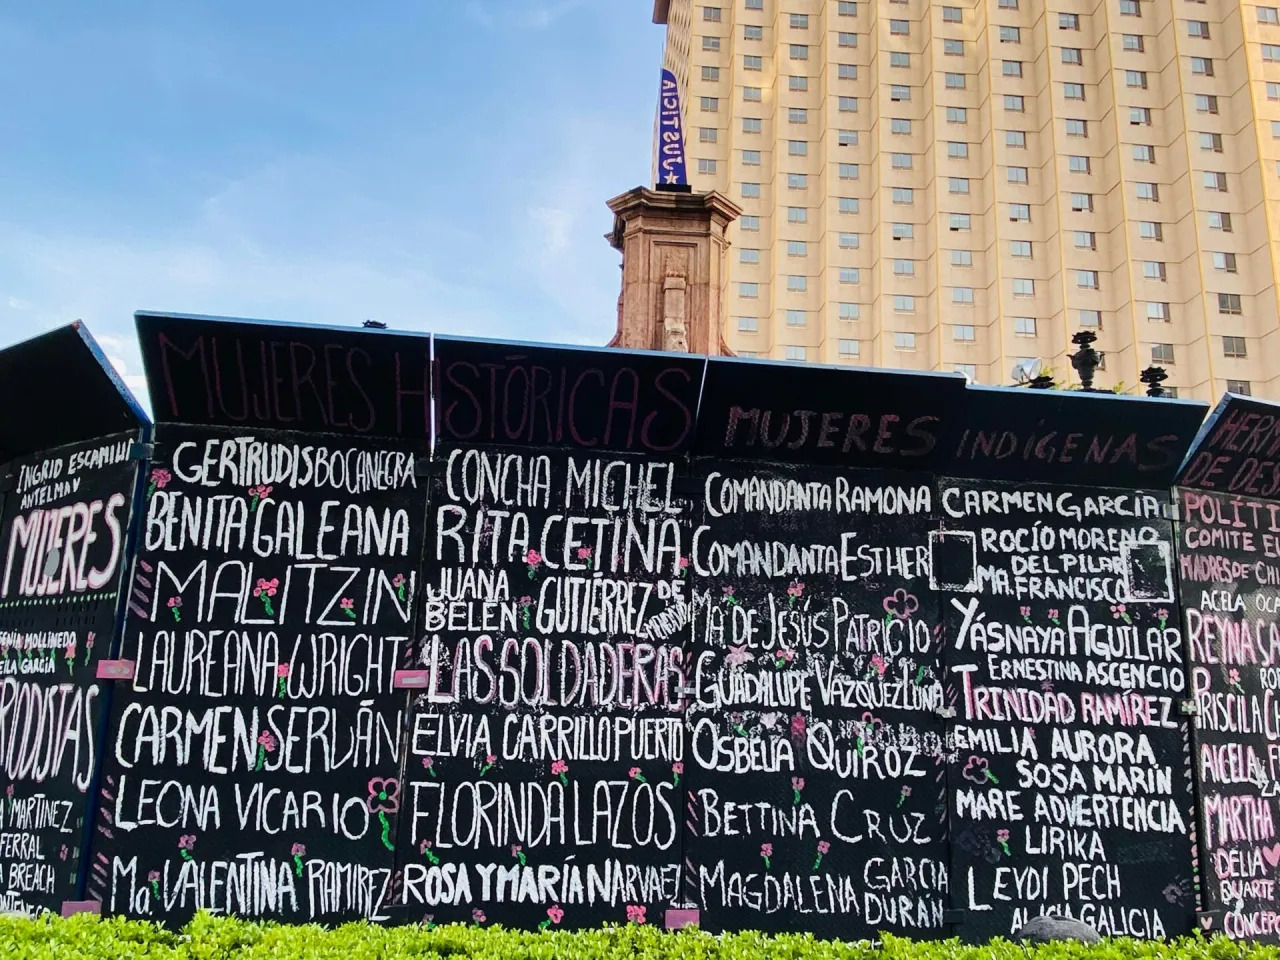 JUSTICIA
MUJERES HISTÓRICAS
MUJERES INDÍGENAS
INGRID ESCAMILLA
ANTELMAV
MUJERES
MOLLINEDO
GARCÍA
MARTÍNEZ
FERRAL
BREACH
GERTRUDIS BOCANEGRA
BENITA GALEANA
MALITZIN
LAUREANA WRIGHT
CARMEN SERDÁN
LEONA VICARIO
Ma. VALENTINA RAMIREZ
CONCHA MICHEL
RITA CETINA
JUANA BELÉN GUTIÉRREZ DE MENDOZA
LAS SOLDADERAS
ELVIA CARRILLO PUERTO
FLORINDA LAZOS
ROSA Y MARÍA NARVAEZ
COMANDANTA RAMONA
COMANDANTA ESTHER
MA DE JESÚS PATRICIO
GUADALUPE VÁZQUEZ LUNA
OSBELIA QUIROZ
BETTINA CRUZ
MAGDALENA GARCIA DURÁN
CARMEN GARCÍA
ROCÍO MORENO
DEL PILAR
MA. FRANCISCO
YÁSNAYA AGUILAR
ERNESTINA ASCENCIO
TRINIDAD RAMÍREZ
EMILIA AURORA
SOSA MARÍN
MARE ADVERTENCIA
LIRIKA
LEYDI PECH
ALICIA GALICIA
DE
COMITÉ
MADRES DE
ACELA
REYNA
PRISCILA
AICELA
MARTHA
DELIA
DUARTE